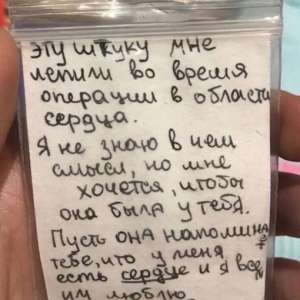 эту штуку мне
лепили во время
операции в области
сердца.
Я не знаю в чем
смысл, но мне
хочется, чтобы
она была у тебя.
Пусть ОНА напомина
тебе, что у меня
есть сердце и я все
им люблю